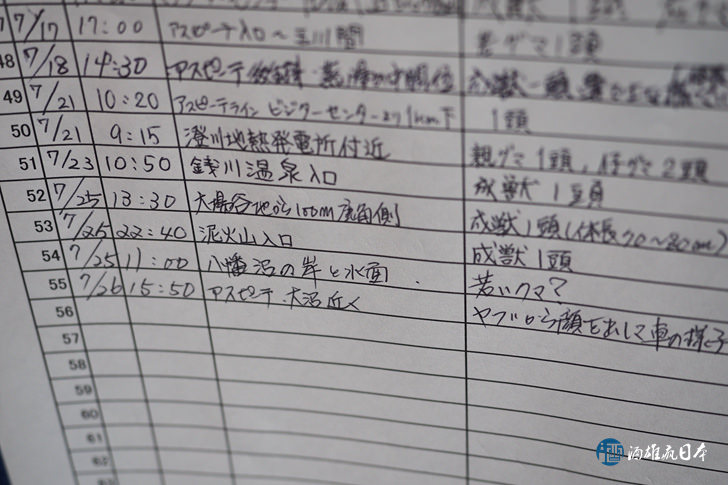 7/17 17:00 アスピーテ入口〜玉川間 若グマ1頭
48 7/18 14:30 アスピーテ 中間位 成獣一頭
49 7/21 10:20 アスピーテライン ビジターセンターより1km下 1頭
50 7/21 9:15 澄川地熱発電所付近 親グマ1頭,仔グマ2頭
51 7/23 10:50 銭川温泉入口 成獣1頭
52 7/25 13:30 大場谷地から100m鹿角側 成獣1頭(体長70〜80cm)
53 7/25 22:40 泥火山入口 成獣1頭
54 7/25 11:00 八幡沼の岸と水面 若いクマ?
55 7/26 15:50 アスピーテ.大沼近く ヤブから顔を出して車の様子
56
57
58
59
60
61
酒雄瘋日本